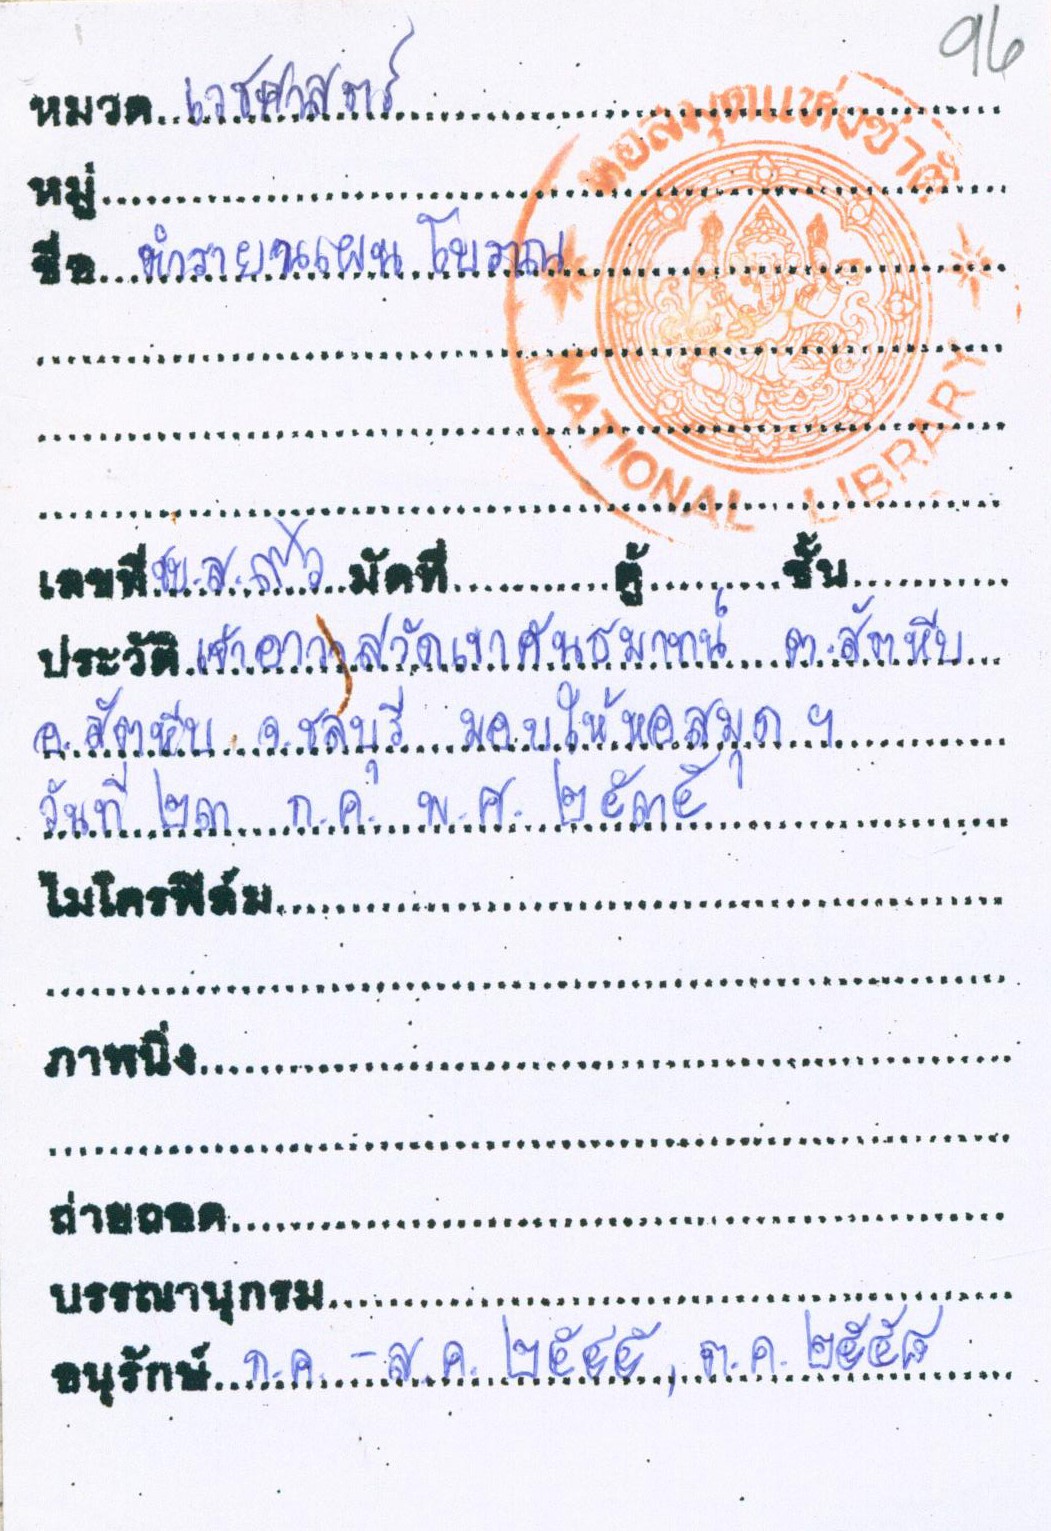 96
หมวด เวชศาสตร์
หอสมุดแห่งชาติ
หมู่
ชื่อ ตำรายาแผนโบราณ
NATIONAL LIBRARY
เลขที่ ชบ.ส. มัดที่ ตู้ ชั้น
ประวัติ เจ้าอาวาสวัดเขาคันธมาทน์ ต.สัตหีบ
อ.สัตหีบ จ.ชลบุรี มอบให้หอสมุดฯ
วันที่ ๒๓ ก.ค. พ.ศ. ๒๕๓๕
ไมโครฟิล์ม
ภาพนิ่ง
ถ่ายถอด
บรรณานุกรม
อนุรักษ์ ก.ค. - ส.ค. ๒๕๔๕, ต.ค. ๒๕๕๘